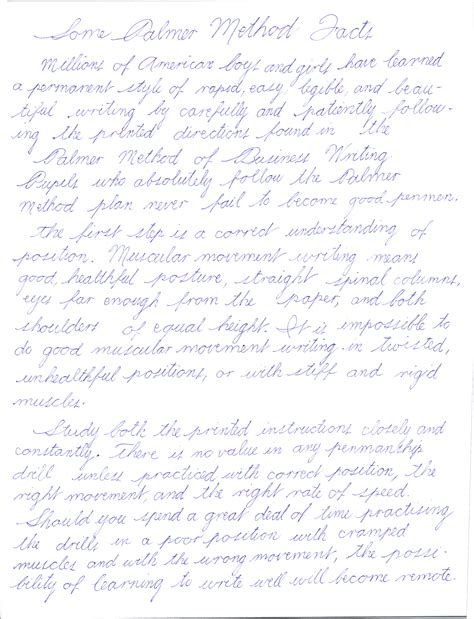 Some Palmer Method Facts
Millions of American boys and girls have learned
a permanent style of rapid, easy, legible, and beau-
tiful writing by carefully and patiently follow-
ing the printed directions found in the
Palmer Method of Business Writing
Pupils who absolutely follow the Palmer
Method plan never fail to become good penmen.
The first step is a correct understanding of
position. Muscular movement writing means
good, healthful posture, straight spinal columns,
eyes far enough from the paper, and both
shoulders of equal height. It is impossible to
do good muscular movement writing in twisted,
unhealthful positions, or with stiff and rigid
muscles.
Study both the printed instructions closely and
constantly. There is no value in any penmanship
drill unless practiced with correct position, the
right movement, and the right rate of speed.
Should you spend a great deal of time practising
the drills in a poor position with cramped
muscles and with the wrong movement, the possi-
bility of learning to write well will become remote.